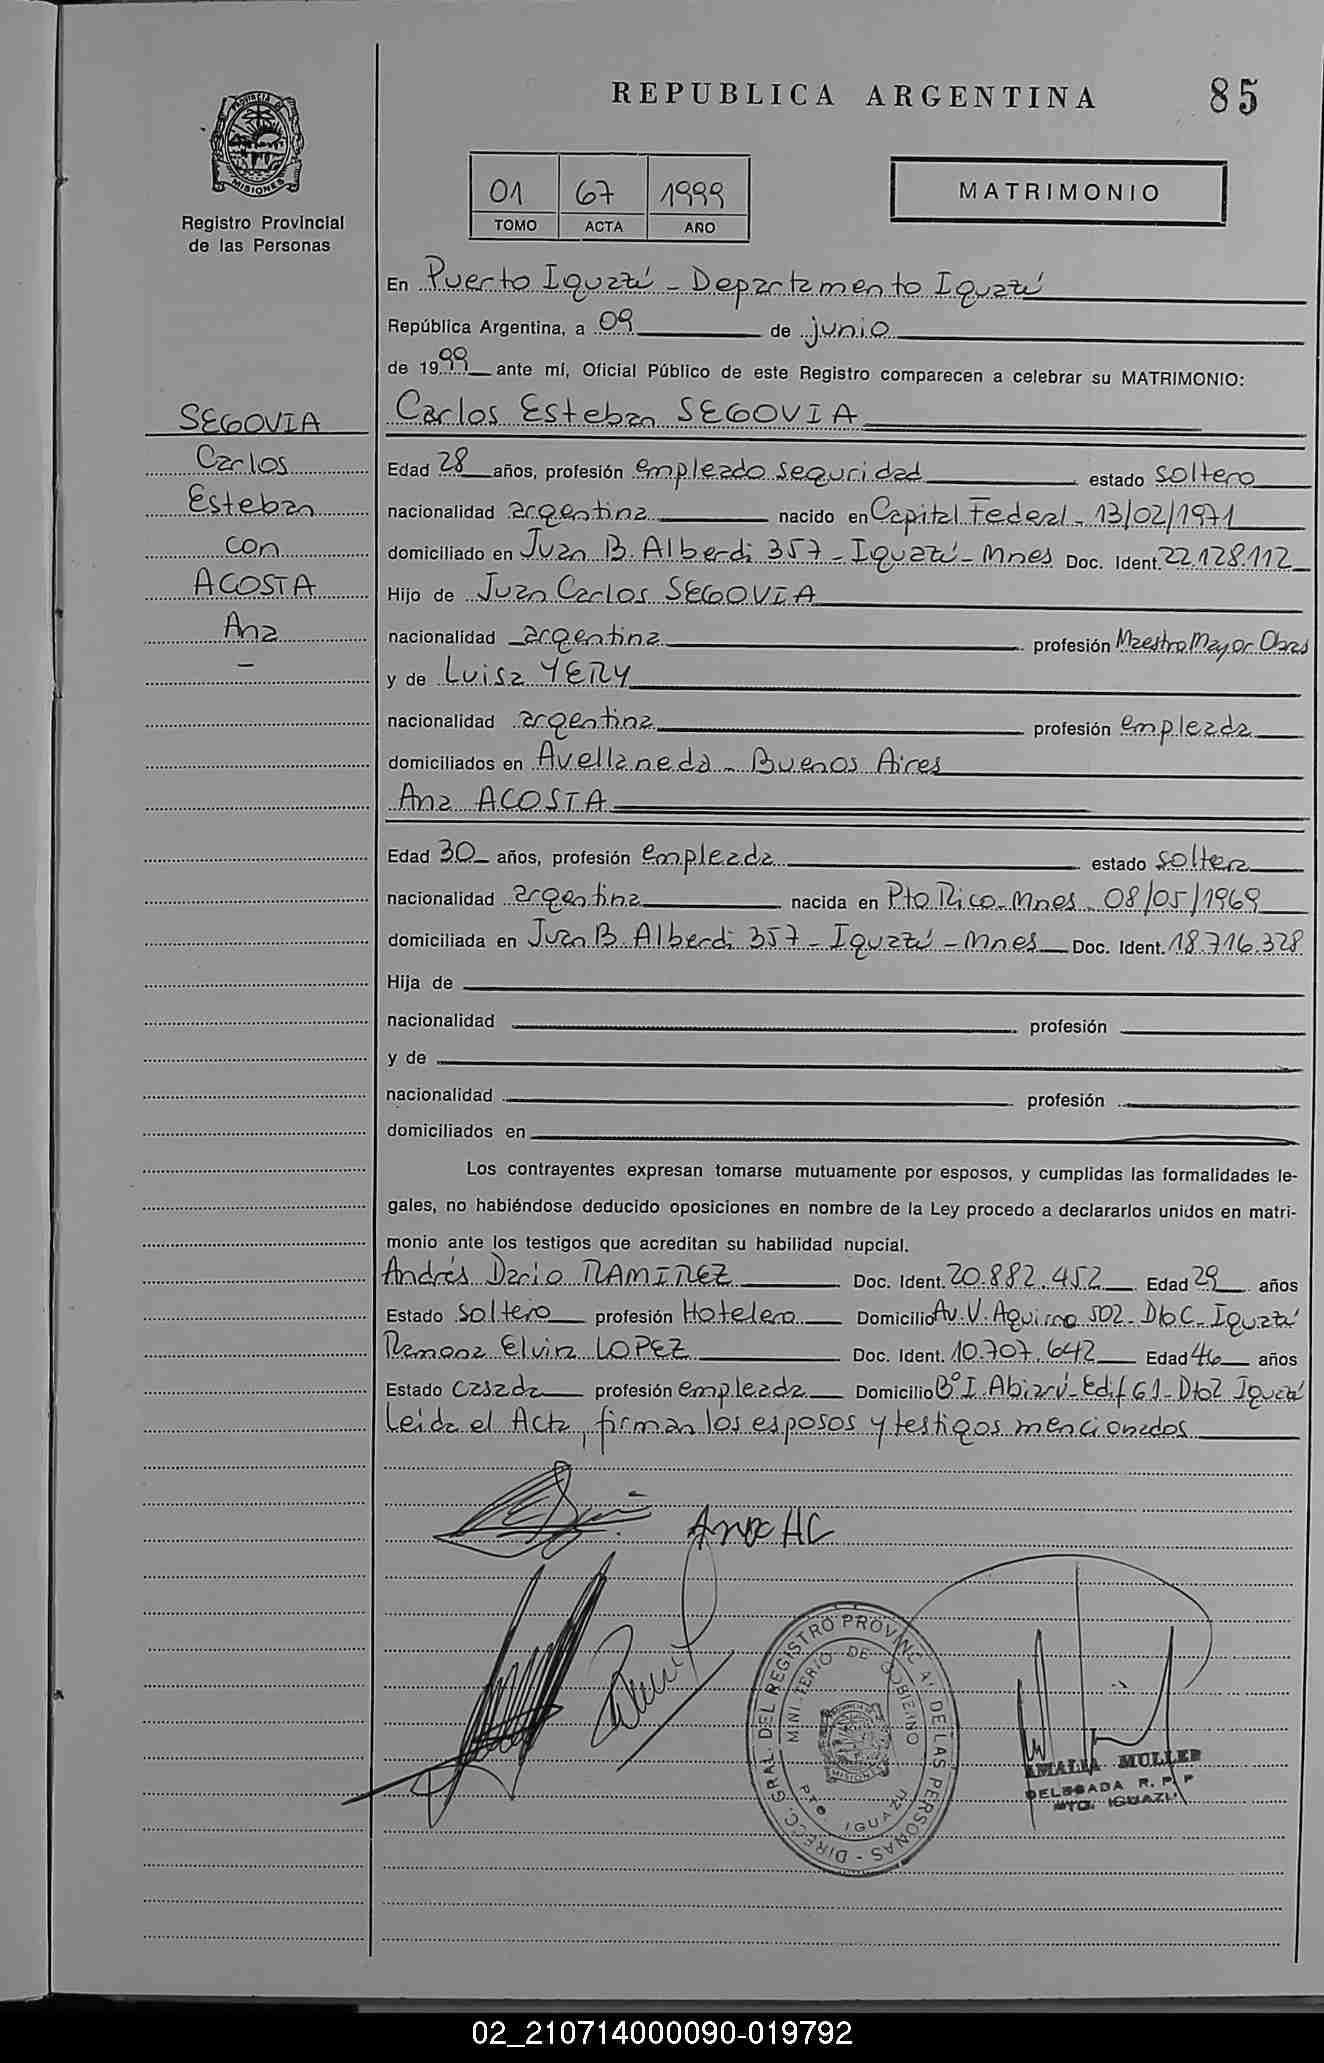 REPUBLICA ARGENTINA 85
PROVINCIA DE MISIONES
Registro Provincial
de las Personas
01 67 1999
TOMO ACTA AÑO
MATRIMONIO
En Puerto Iguazú - Departamento Iguazú
República Argentina, a 09 de junio
de 1999 ante mí, Oficial Público de este Registro comparecen a celebrar su MATRIMONIO:
SEGOVIA
Carlos
Esteban
con
ACOSTA
Ana
-
Carlos Esteban SEGOVIA
Edad 28 años, profesión empleado seguridad estado soltero
nacionalidad argentina nacido en Capital Federal - 13/02/1971
domiciliado en Juan B. Alberdi 357 - Iguazú - Mnes Doc. Ident. 22.128.112
Hijo de Juan Carlos SEGOVIA
nacionalidad argentina profesión Maestro Mayor Obras
y de Luisa YERY
nacionalidad argentina profesión empleada
domiciliados en Avellaneda - Buenos Aires
Ana ACOSTA
Edad 30 años, profesión empleada estado soltera
nacionalidad argentina nacida en Pto Rico - Mnes - 08/05/1969
domiciliada en Juan B. Alberdi 357 - Iguazú - Mnes Doc. Ident. 18.716.328
Hija de
nacionalidad profesión
y de
nacionalidad profesión
domiciliados en
Los contrayentes expresan tomarse mutuamente por esposos, y cumplidas las formalidades le-
gales, no habiéndose deducido oposiciones en nombre de la Ley procedo a declararlos unidos en matri-
monio ante los testigos que acreditan su habilidad nupcial.
Andrés Dario RAMIREZ Doc. Ident. 20.882.452 Edad 29 años
Estado soltero profesión Hotelero Domicilio Av. V. Aguirre 502 - Dto C - Iguazú
Ramona Elvira LOPEZ Doc. Ident. 10.707.642 Edad 46 años
Estado casada profesión empleada Domicilio Bº I. Abiarú - Edif 61 - Dto 2 Iguazú
Leida el Acta, firman los esposos y testigos mencionados
Ana AC
DIRECC. GRAL. DEL REGISTRO PROVINCIAL DE LAS PERSONAS
MINISTERIO DE GOBIERNO
PTO IGUAZU
AMALIA MULLER
DELEGADA R. P. P
PTO. IGUAZU
02_210714000090-019792